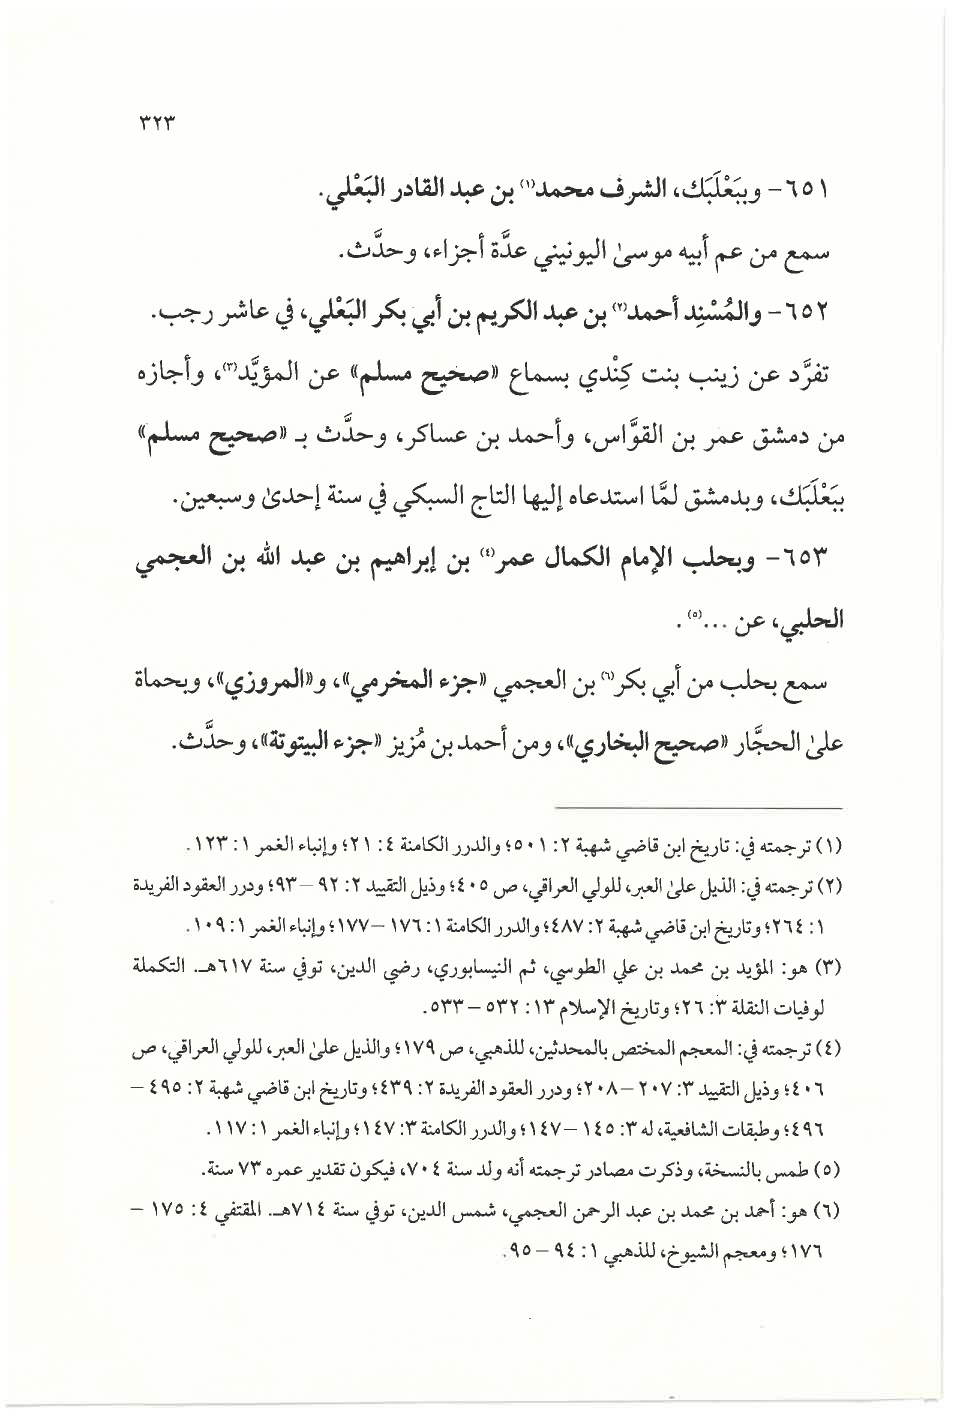 ٣٢٣
٦٥١ - وببَعْلَبَك، الشرف محمد(١) بن عبد القادر البَعْلي.
سمع من عم أبيه موسىٰ اليونيني عدَّة أجزاء، وحدَّث.
٦٥٢ - والمُسْنِد أحمد(٢) بن عبد الكريم بن أبي بكر البَعْلي، في عاشر رجب.
تفرَّد عن زينب بنت كِنْدي بسماع «صحيح مسلم» عن المؤيَّد(٣)، وأجازه
من دمشق عمر بن القوَّاس، وأحمد بن عساكر، وحدَّث بـ «صحيح مسلم»
ببَعْلَبَك، وبدمشق لمَّا استدعاه إليها التاج السبكي في سنة إحدىٰ وسبعين.
٦٥٣ - وبحلب الإمام الكمال عمر(٤) بن إبراهيم بن عبد الله بن العجمي
الحلبي، عن ...(٥) .
سمع بحلب من أبي بكر(٦) بن العجمي «جزء المخرمي»، و«المروزي»، وبحماة
علىٰ الحجَّار «صحيح البخاري»، ومن أحمد بن مُزيز «جزء البيتوتة»، وحدَّث.
(١) ترجمته في: تاريخ ابن قاضي شهبة ٢: ٥٠١؛ والدرر الكامنة ٤: ٢١؛ وإنباء الغمر ١: ١٢٣.
(٢) ترجمته في: الذيل علىٰ العبر، للولي العراقي، ص ٤٠٥؛ وذيل التقييد ٢: ٩٢ - ٩٣؛ ودرر العقود الفريدة
١: ٢٦٤؛ وتاريخ ابن قاضي شهبة ٢: ٤٨٧؛ والدرر الكامنة ١: ١٧٦ - ١٧٧؛ وإنباء الغمر ١: ١٠٩.
(٣) هو: المؤيد بن محمد بن علي الطوسي، ثم النيسابوري، رضي الدين، توفي سنة ٦١٧هـ. التكملة
لوفيات النقلة ٣: ٢٦؛ وتاريخ الإسلام ١٣: ٥٣٢ - ٥٣٣.
(٤) ترجمته في: المعجم المختص بالمحدثين، للذهبي، ص ١٧٩؛ والذيل علىٰ العبر، للولي العراقي، ص
٤٠٦؛ وذيل التقييد ٣: ٢٠٧ - ٢٠٨؛ ودرر العقود الفريدة ٢: ٤٣٩؛ وتاريخ ابن قاضي شهبة ٢: ٤٩٥ -
٤٩٦؛ وطبقات الشافعية، له ٣: ١٤٥ - ١٤٧؛ والدرر الكامنة ٣: ١٤٧؛ وإنباء الغمر ١: ١١٧.
(٥) طمس بالنسخة، وذكرت مصادر ترجمته أنه ولد سنة ٧٠٤، فيكون تقدير عمره ٧٣ سنة.
(٦) هو: أحمد بن محمد بن عبد الرحمن العجمي، شمس الدين، توفي سنة ٧١٤هـ. المقتفي ٤: ١٧٥ -
١٧٦؛ ومعجم الشيوخ، للذهبي ١: ٩٤ - ٩٥.